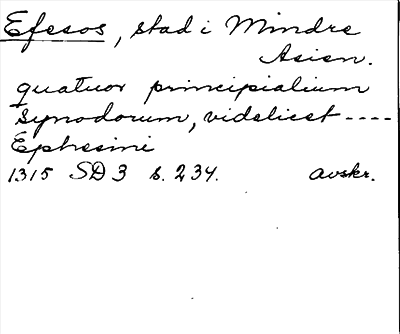 Efesos, stad i Mindre
Asien.
quatuor principialium
Synodorum, videlicet ----
Ephesini
1315 SD 3 s. 234. avskr.